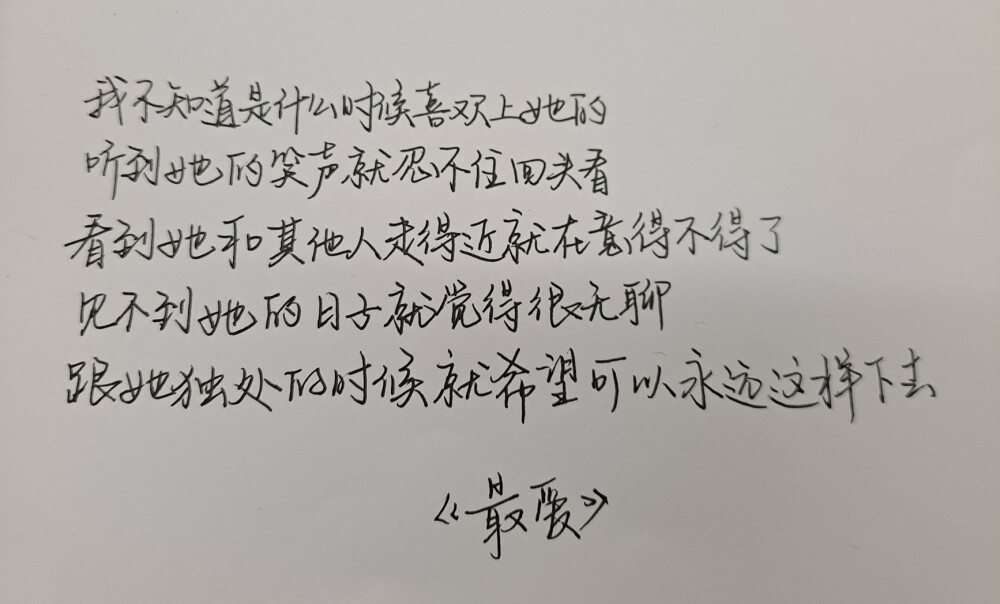 我不知道是什么时候喜欢上她的
听到她的笑声就忍不住回头看
看到她和其他人走得近就在意得不得了
见不到她的日子就觉得很无聊
跟她独处的时候就希望可以永远这样下去
《最爱》